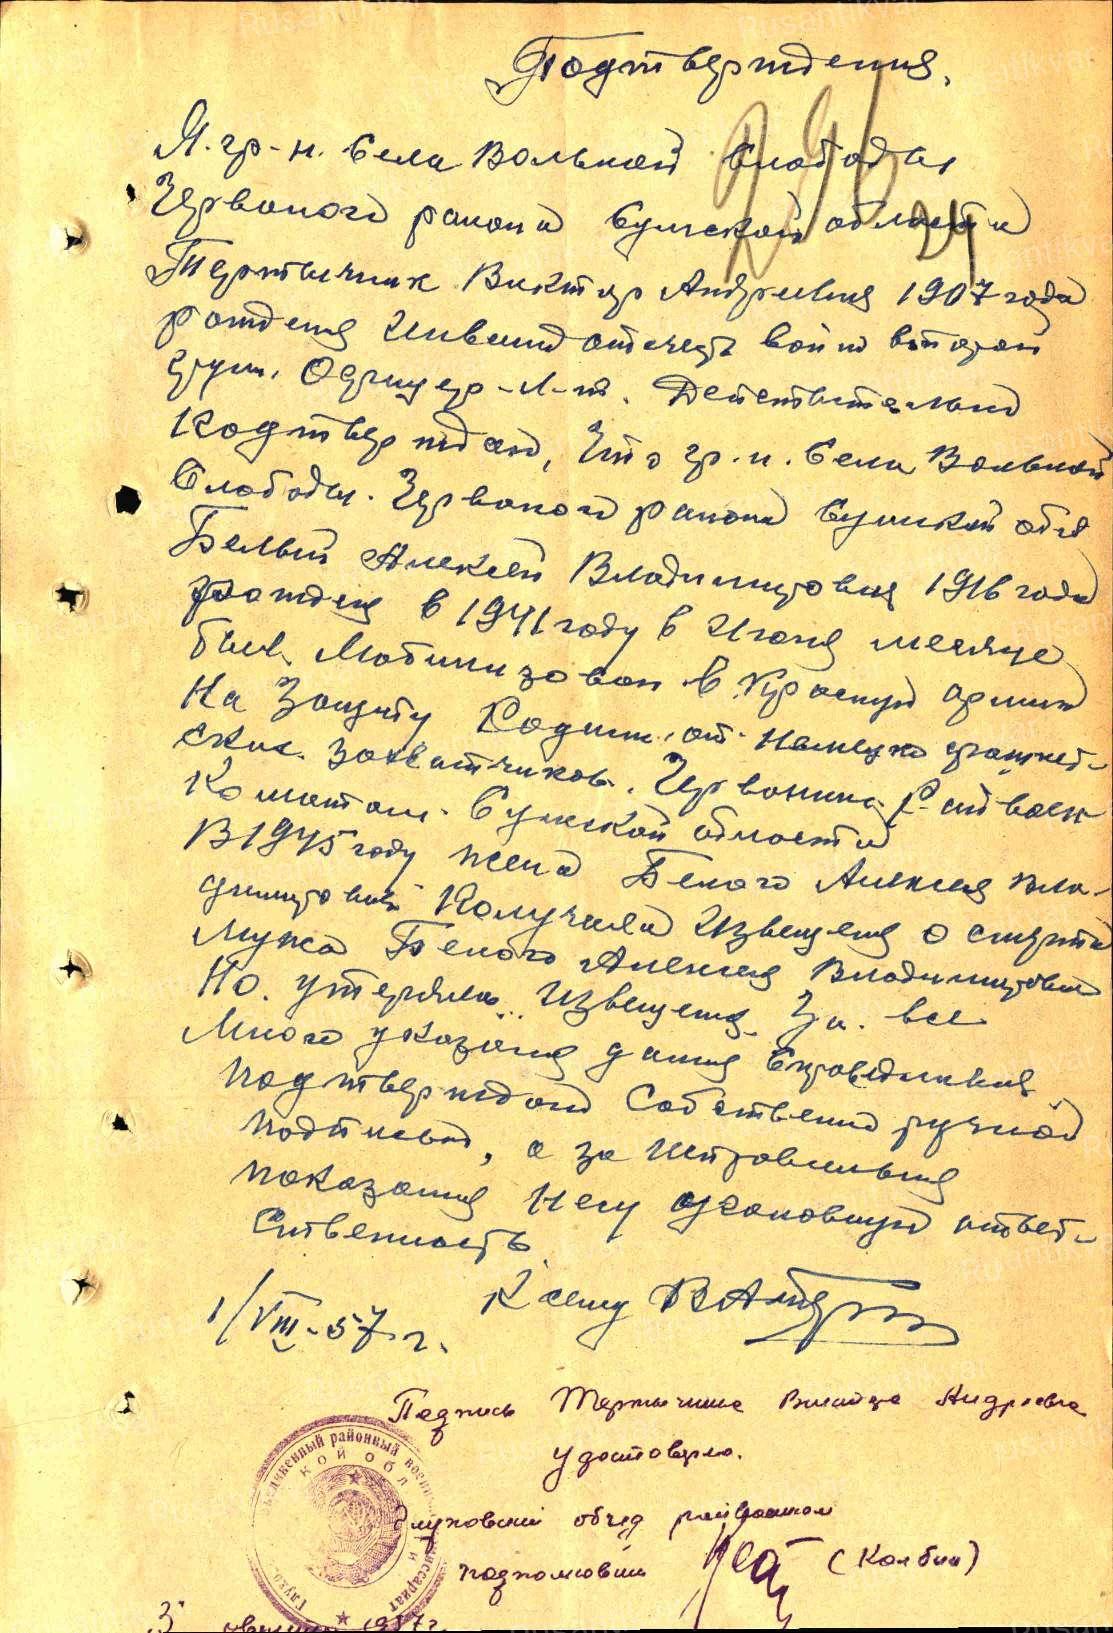 Подтверждения.
Я. гр-н. села Вольной Слободы
Червоного района Сумской области
Тертычник Виктор Андреевич 1907 года
рождения Инвалид отечеств войны второй
груп. Офицер - Л-т. Действительно
подтверждаю, что гр.н. села Вольной
Слободы. Червоного района Сумской обл
Белый Алексей Владимирович 1916 года
рождения в 1941 году в Июня месяце
был Мобилизован в Красную армию
На Защиту Родины от немецко фашист-
ских захватчиков. Червоним Райвоен
Коматом. Сумской области
В 1945 году жена Белого Алексея Вла-
димировича Получила Извещения о смерти
Мужа Белого Алексея Владимировича
Но. утеряла Извещения За. все
Мною указаная дания
подтверждаю Собственно ручной
подписью, а за неправильные
показания Несу ответ-
ственность
К сему
1/VIII-57 г.
24
Подпись Тертычника Виктора Андреевича
удостоверяю.
Глуховский объед райвоенком
подполковник (Колбин)
3 1957г.
объединенный районный военный комиссариат
Глухо
кой обл